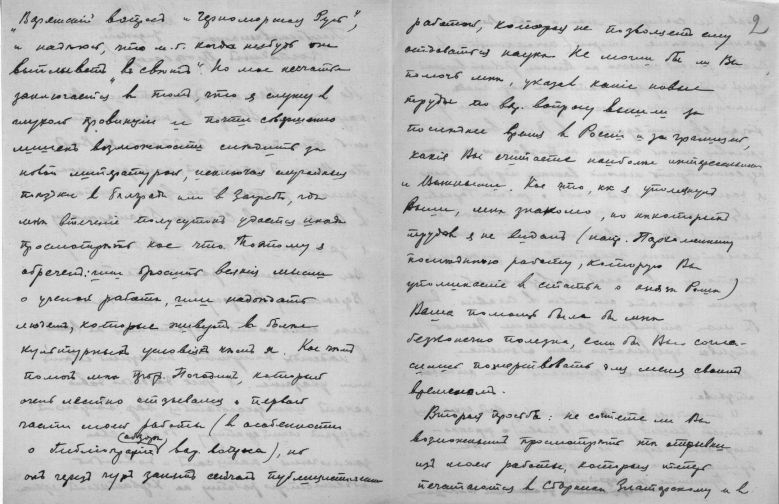 "Варяжский вопрос и Черноморская Русь",
и надеюсь, что м.б. когда нибудь они
выплывет "в свет". Но мое несчастье
заключается в том, что я служу в
глухой провинции и почти совершенно
лишен возможности следить за
новой литературой, исключая случайных
поездки в Белград или в Загреб, где
мне в течение полусуток удается иногда
просмотреть кое что. Поэтому я
обречен: или бросить всякие мысли
о ученой работе, или надоедать
людям, которые живут в более
культурных условиях чем я. Кое чем
помог мне проф. Погодин, который
очень лестно отзывался о первой
части моей работы (в особенности
о библиографии вар. вопроса), но
он через чур занят сейчас публицистической
2
работой, которая не позволяет ему
отдаваться науке. Не могли бы ли Вы
помочь мне, указав какие новые
труды по вар. вопросу вышли за
последнее время в России и за границей,
какие Вы считаете наиболее интересными
и важными. Кое что, как я упомянул
выше, мне знакомо, но некоторых
трудов я не видал (напр. Пархоменко
последнюю работу, которую Вы
упоминаете в статье о князе)
Ваша помощь была бы мне
бесконечно полезна, если бы Вы согла-
сились пожертвовать для меня своим
временем.
Вторая просьба: не сочтете ли Вы
возможным просмотреть те отрывки
из моей работы, которые теперь
печатаются в Сборнике Златарскому и в